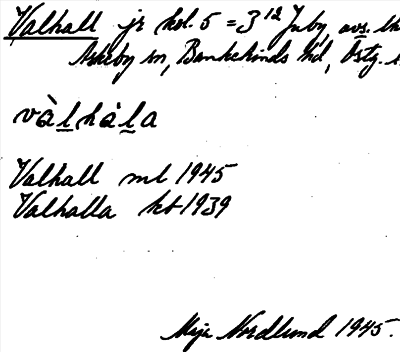 Valhall jr kol. 5 = 3¹² Juby, avs.
Askeby sn, Bankekinds hd, Östg.
vàlhàla
Valhall ml 1945
Valhalla kb 1939
Maja Nordlund 1945.